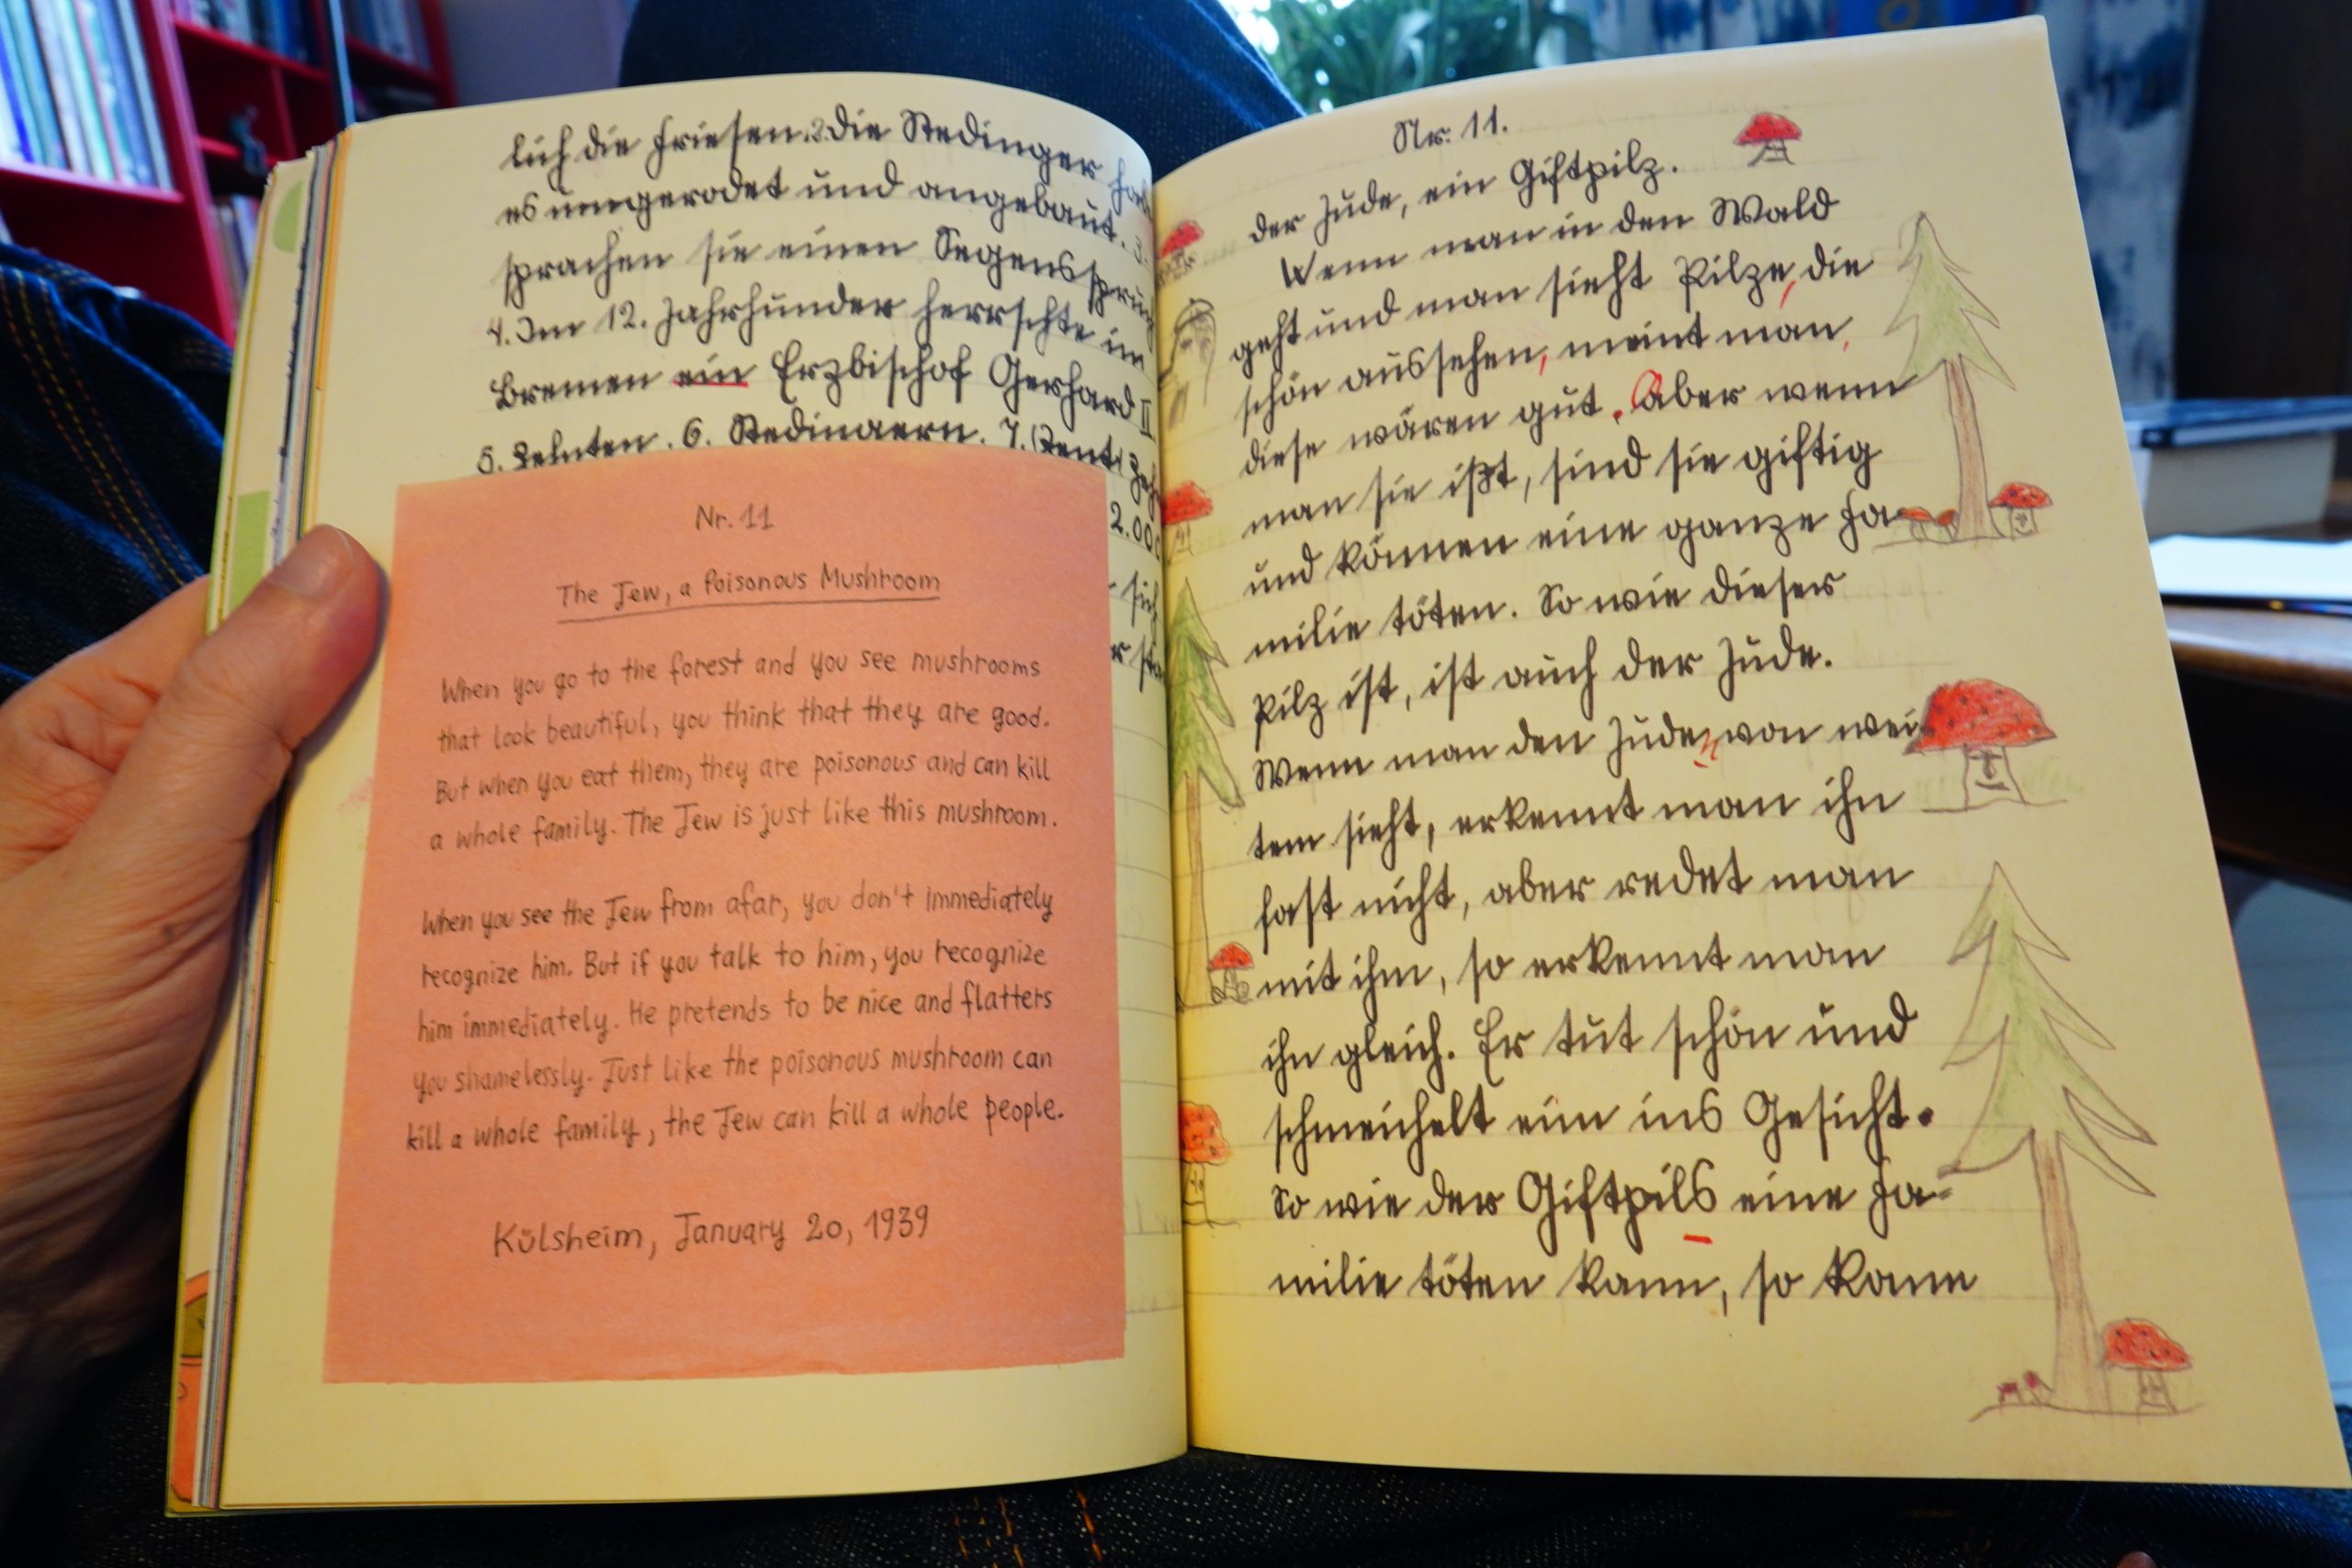 lich die Friesen. 2. die Stedinger
es umgerodet und angebaut. 3.
sprachen sie einen Segensspruch
4. Im 12. Jahrhunder herrschte im
Bremen ein Erzbischof Gerhard II
5. Zehnten. 6. Stedingern. 7. (Zent)
2.000
sich
Nr. 11
The Jew, a Poisonous Mushroom
When you go to the forest and you see mushrooms
that look beautiful, you think that they are good.
But when you eat them, they are poisonous and can kill
a whole family. The Jew is just like this mushroom.
When you see the Jew from afar, you don't immediately
recognize him. But if you talk to him, you recognize
him immediately. He pretends to be nice and flatters
you shamelessly. Just like the poisonous mushroom can
kill a whole family, the Jew can kill a whole people.
Külsheim, January 20, 1939
Nr. 11.
der Jude, ein Giftpilz.
Wenn man in den Wald
geht und man sieht Pilze, die
schön aussehen, meint man,
diese wären gut. Aber wenn
man sie ißt, sind sie giftig
und können eine ganze Fa-
milie töten. So wie dieser
Pilz ist, ist auch der Jude.
Wenn man den Jude, von wei-
tem sieht, erkennt man ihn
fast nicht, aber redet man
mit ihm, so erkennt man
ihn gleich. Er tut schön und
schmeichelt eim ins Gesicht.
So wie der Giftpils eine Fa-
milie töten kann, so kann